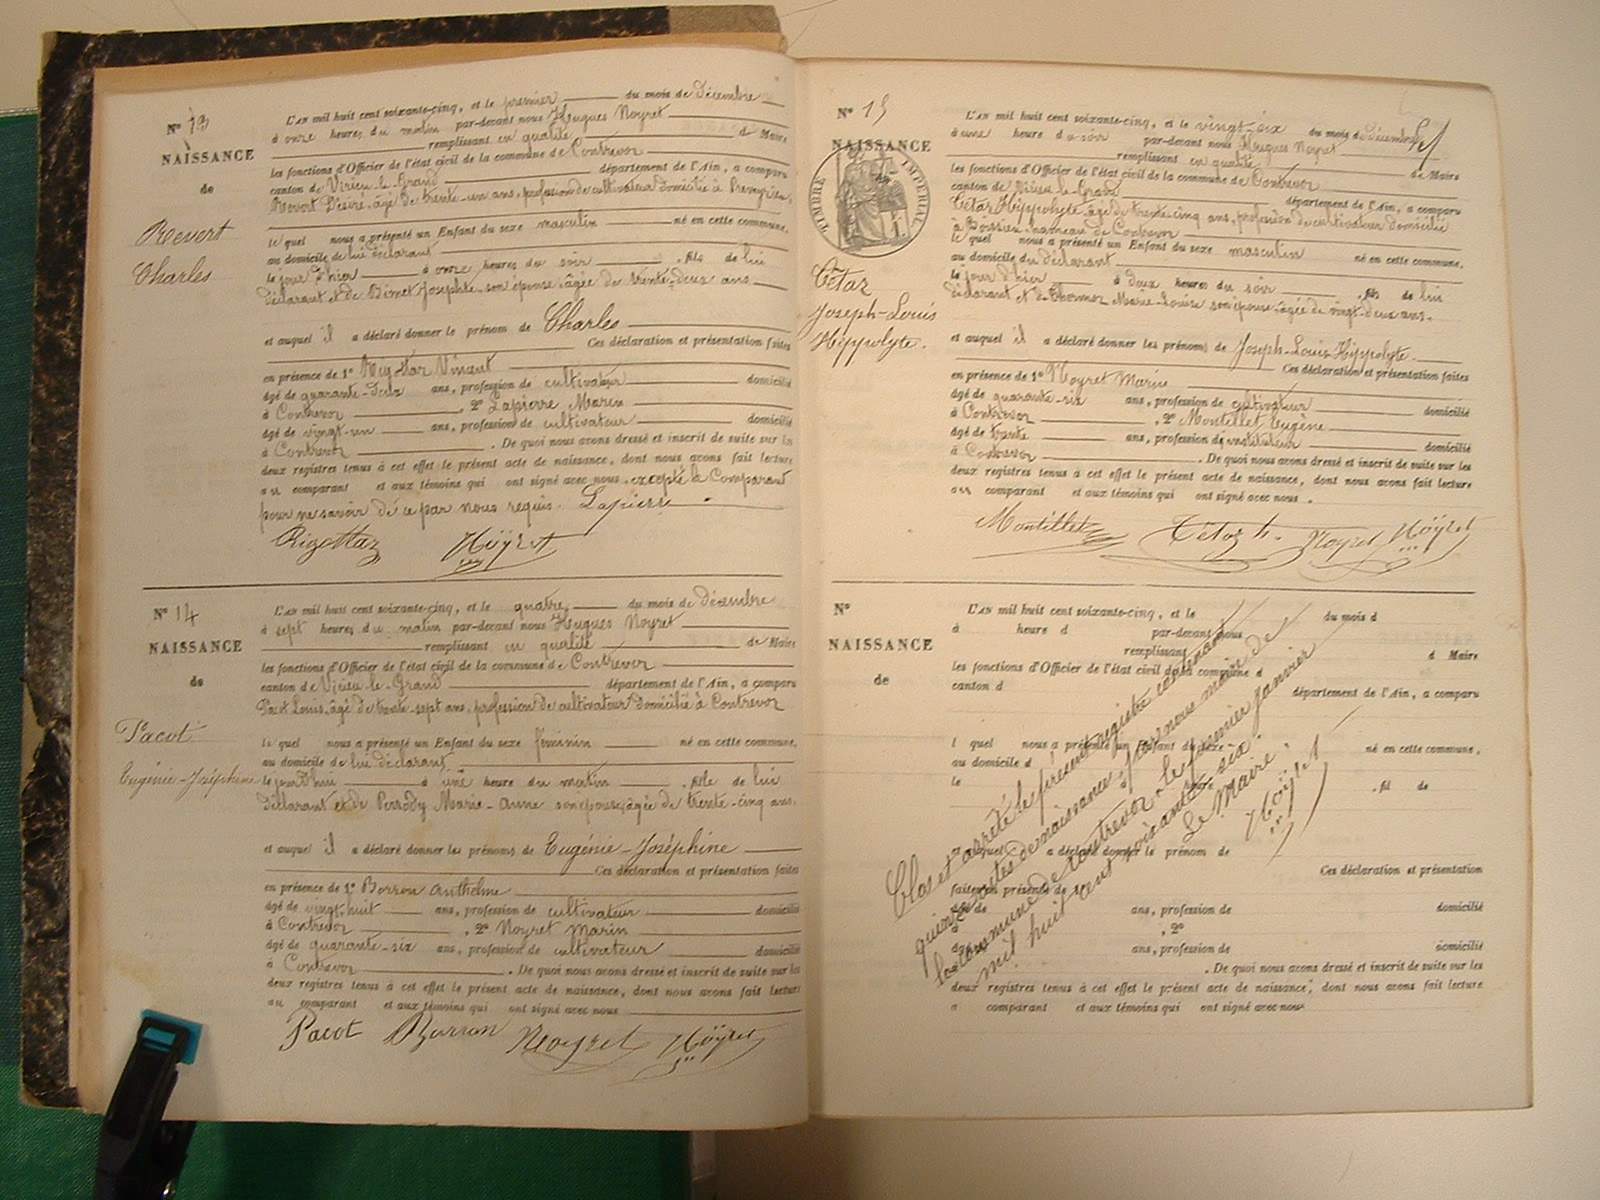 N° 13
NAISSANCE
de
Revert
Charles
L'AN mil huit cent soixante-cinq, et le premier du mois de Décembre
à onze heures du matin par-devant nous Hugues Noyret
remplissant en qualité de Maire
les fonctions d'Officier de l'état civil de la commune de Contrevoz
canton de Virieu-le-Grand département de l'Ain, a comparu
Revert Désiré, âgé de trente-un ans, profession de cultivateur domicilié à
le quel nous a présenté un Enfant du sexe masculin né en cette commune,
au domicile de lui déclarant
le jour d'hier à onze heures du soir, fils de lui
déclarant et de Binet Josephte son épouse âgée de trente-deux ans
et auquel il a déclaré donner le prénom de Charles
Ces déclaration et présentation faites
en présence de 1° Rigottaz Vincent
âgé de quarante- ans, profession de cultivateur domicilié
à Contrevoz, 2° Lapierre Marin
âgé de vingt-un ans, profession de cultivateur domicilié
à Contrevoz. De quoi nous avons dressé et inscrit de suite sur les
deux registres tenus à cet effet le présent acte de naissance, dont nous avons fait lecture
au comparant et aux témoins qui ont signé avec nous excepté le Comparant
pour ne savoir de ce par nous requis. Lapierre
Rigottaz Noÿret
N° 14
NAISSANCE
de
Pacot
Eugénie-Joséphine
L'AN mil huit cent soixante-cinq, et le quatre du mois de décembre
à sept heures du matin par-devant nous Hugues Noyret
remplissant en qualité de Maire
les fonctions d'Officier de l'état civil de la commune de Contrevoz
canton de Virieu-le-Grand département de l'Ain, a comparu
Pacot Louis, âgé de trente-sept ans, profession de cultivateur domicilié à Contrevoz
le quel nous a présenté un Enfant du sexe féminin né en cette commune,
au domicile de lui déclarant
le jour d'hui à une heure du matin, fille de lui
déclarant et de Perrody Marie-Anne son épouse, âgée de trente-cinq ans.
et auquel il a déclaré donner les prénoms de Eugénie-Joséphine
Ces déclaration et présentation faites
en présence de 1° Borron Anthelme
âgé de vingt-huit ans, profession de cultivateur domicilié
à Contrevoz, 2° Noyret Marin
âgé de quarante-six ans, profession de cultivateur domicilié
à Contrevoz. De quoi nous avons dressé et inscrit de suite sur les
deux registres tenus à cet effet le présent acte de naissance, dont nous avons fait lecture
au comparant et aux témoins qui ont signé avec nous
Pacot Borron Noyret Noÿret
N° 15
NAISSANCE
TIMBRE IMPÉRIAL
Tétaz
Joseph-Louis
Hippolyte.
L'AN mil huit cent soixante-cinq, et le vingt-six du mois de Décembre
à une heure du soir par-devant nous Hugues Noyret
remplissant en qualité de Maire
les fonctions d'Officier de l'état civil de la commune de Contrevoz
canton de Virieu-le-Grand département de l'Ain, a comparu
Tétaz Hippolyte âgé de trente-cinq ans, profession de cultivateur domicilié
à Boissieu, hameau de Contrevoz
le quel nous a présenté un Enfant du sexe masculin né en cette commune,
au domicile du déclarant
le jour d'hier à deux heures du soir, fils de lui
déclarant et de Thomas Marie-Louise son épouse âgée de vingt-deux ans.
et auquel il a déclaré donner les prénoms de Joseph-Louis-Hippolyte.
Ces déclaration et présentation faites
en présence de 1° Noyret Marin
âgé de quarante-six ans, profession de cultivateur domicilié
à Contrevoz, 2° Montillet Eugène
âgé de trente ans, profession de instituteur domicilié
à Contrevoz. De quoi nous avons dressé et inscrit de suite sur les
deux registres tenus à cet effet le présent acte de naissance, dont nous avons fait lecture
au comparant et aux témoins qui ont signé avec nous.
Montillet Tétaz h. Noyret Noÿret
N°
NAISSANCE
de
L'AN mil huit cent soixante-cinq, et le du mois d
à heure d par-devant nous
remplissant d Maire
les fonctions d'Officier de l'état civil de la commune d
canton d département de l'Ain, a comparu
l quel nous a présenté un Enfant du sexe né en cette commune,
au domicile d
le à heure, fil de
et auquel a déclaré donner le prénom de
Ces déclaration et présentation
faites en présence de
âgé de ans, profession de domicilié
à, 2°
âgé de ans, profession de domicilié
à. De quoi nous avons dressé et inscrit de suite sur les
deux registres tenus à cet effet le présent acte de naissance, dont nous avons fait lecture
a comparant et aux témoins qui ont signé avec nous
Clos et arrêté le présent registre contenant
quinze actes de naissance par nous maire de
la commune de Contrevoz le premier Janvier
mil huit cent soixante-six.
Le Maire
Noÿret